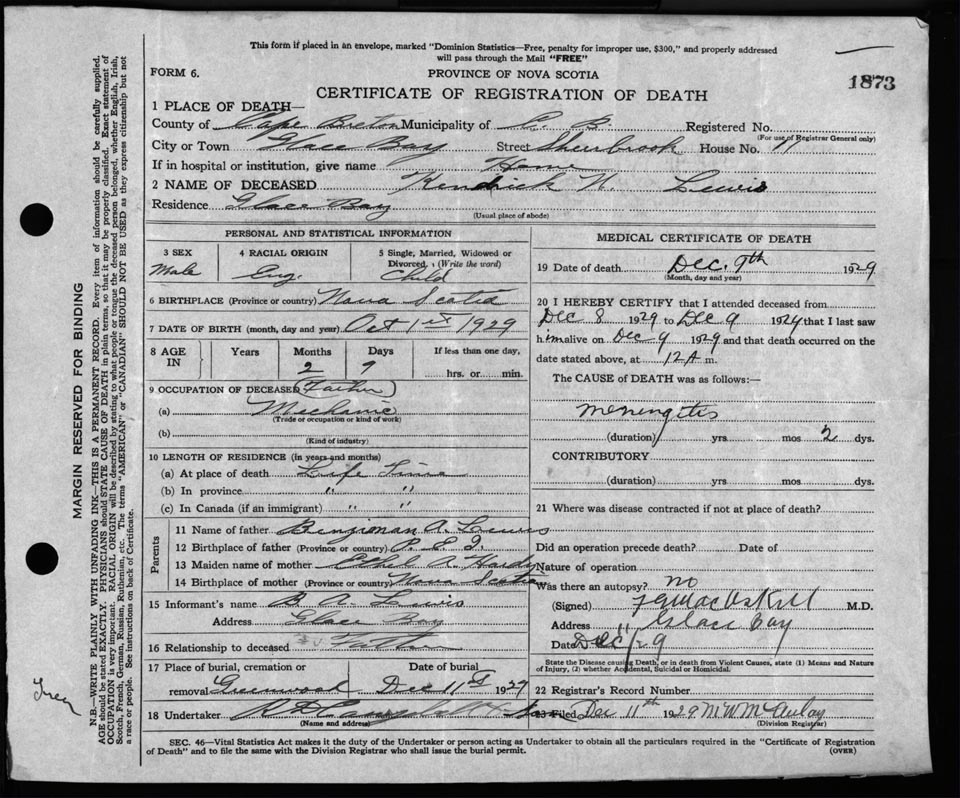 This form if placed in an envelope, marked "Dominion Statistics—Free, penalty for improper use, $300," and properly addressed
will pass through the Mail "FREE"
FORM 6.
PROVINCE OF NOVA SCOTIA
1873
CERTIFICATE OF REGISTRATION OF DEATH
1 PLACE OF DEATH—
County of Cape Breton Municipality of C. B. Registered No.
(For use of Registrar General only)
City or Town Glace Bay Street Sheerbrook House No.
If in hospital or institution, give name Home
2 NAME OF DECEASED Kendrick H. Lewis
Residence Glace Bay
(Usual place of abode)
PERSONAL AND STATISTICAL INFORMATION
3 SEX Male
4 RACIAL ORIGIN Eng.
5 Single, Married, Widowed or Divorced. (Write the word) Child
6 BIRTHPLACE (Province or country) Nova Scotia
7 DATE OF BIRTH (month, day and year) Oct 1st 1929
8 AGE IN Years Months Days If less than one day,
2 9 hrs. or min.
9 OCCUPATION OF DECEASED (Father)
(a) Mechanic
(Trade or occupation or kind of work)
(b)
(Kind of industry)
10 LENGTH OF RESIDENCE (in years and months)
(a) At place of death Life Time
(b) In province " "
(c) In Canada (if an immigrant) " "
Parents
11 Name of father Benjioman A. Lewis
12 Birthplace of father (Province or country) P. E. I.
13 Maiden name of mother Ethel A. Hardy
14 Birthplace of mother (Province or country) Nova Scotia
15 Informant's name B. A. Lewis
Address Glace Bay
16 Relationship to deceased Father
17 Place of burial, cremation or removal Greenwood Date of burial Dec 11st 1929
18 Undertaker
(Name and address)
MEDICAL CERTIFICATE OF DEATH
19 Date of death Dec. 9th 1929
(Month, day and year)
20 I HEREBY CERTIFY that I attended deceased from
Dec 8 1929 to Dec 9 1929 that I last saw
him alive on Dec 9 1929 and that death occurred on the
date stated above, at 12 A m.
The CAUSE OF DEATH was as follows:—
Meningitis
(duration) yrs mos 2 dys.
CONTRIBUTORY
(duration) yrs. mos. dys.
21 Where was disease contracted if not at place of death?
Did an operation precede death? Date of
Nature of operation
Was there an autopsy? no
(Signed) M.D.
Address Glace Bay
Date Dec 11/29
State the Disease causing Death, or in death from Violent Causes, state (1) Means and Nature
of Injury, (2) whether Accidental, Suicidal or Homicidal.
22 Registrar's Record Number
23 Filed Dec 11th 1929 M W McAulay
(Division Registrar)
SEC. 46—Vital Statistics Act makes it the duty of the Undertaker or person acting as Undertaker to obtain all the particulars required in the "Certificate of Registration
of Death" and to file the same with the Division Registrar who shall issue the burial permit. (OVER)
MARGIN RESERVED FOR BINDING
N.B.—WRITE PLAINLY WITH UNFADING INK—THIS IS A PERMANENT RECORD. Every item of information should be carefully supplied.
AGE should be stated EXACTLY. PHYSICIANS should STATE CAUSE OF DEATH in plain terms, so that it may be properly classified. Exact statement of
OCCUPATION is very important. RACIAL ORIGIN will be described by stating to what people or tongue the deceased person belonged, whether English, Irish,
Scotch, French, German, Russian, Ruthenian, etc. The terms "AMERICAN" or "CANADIAN" SHOULD NOT BE USED as they express citizenship but not
a race or people. See instructions on back of Certificate.